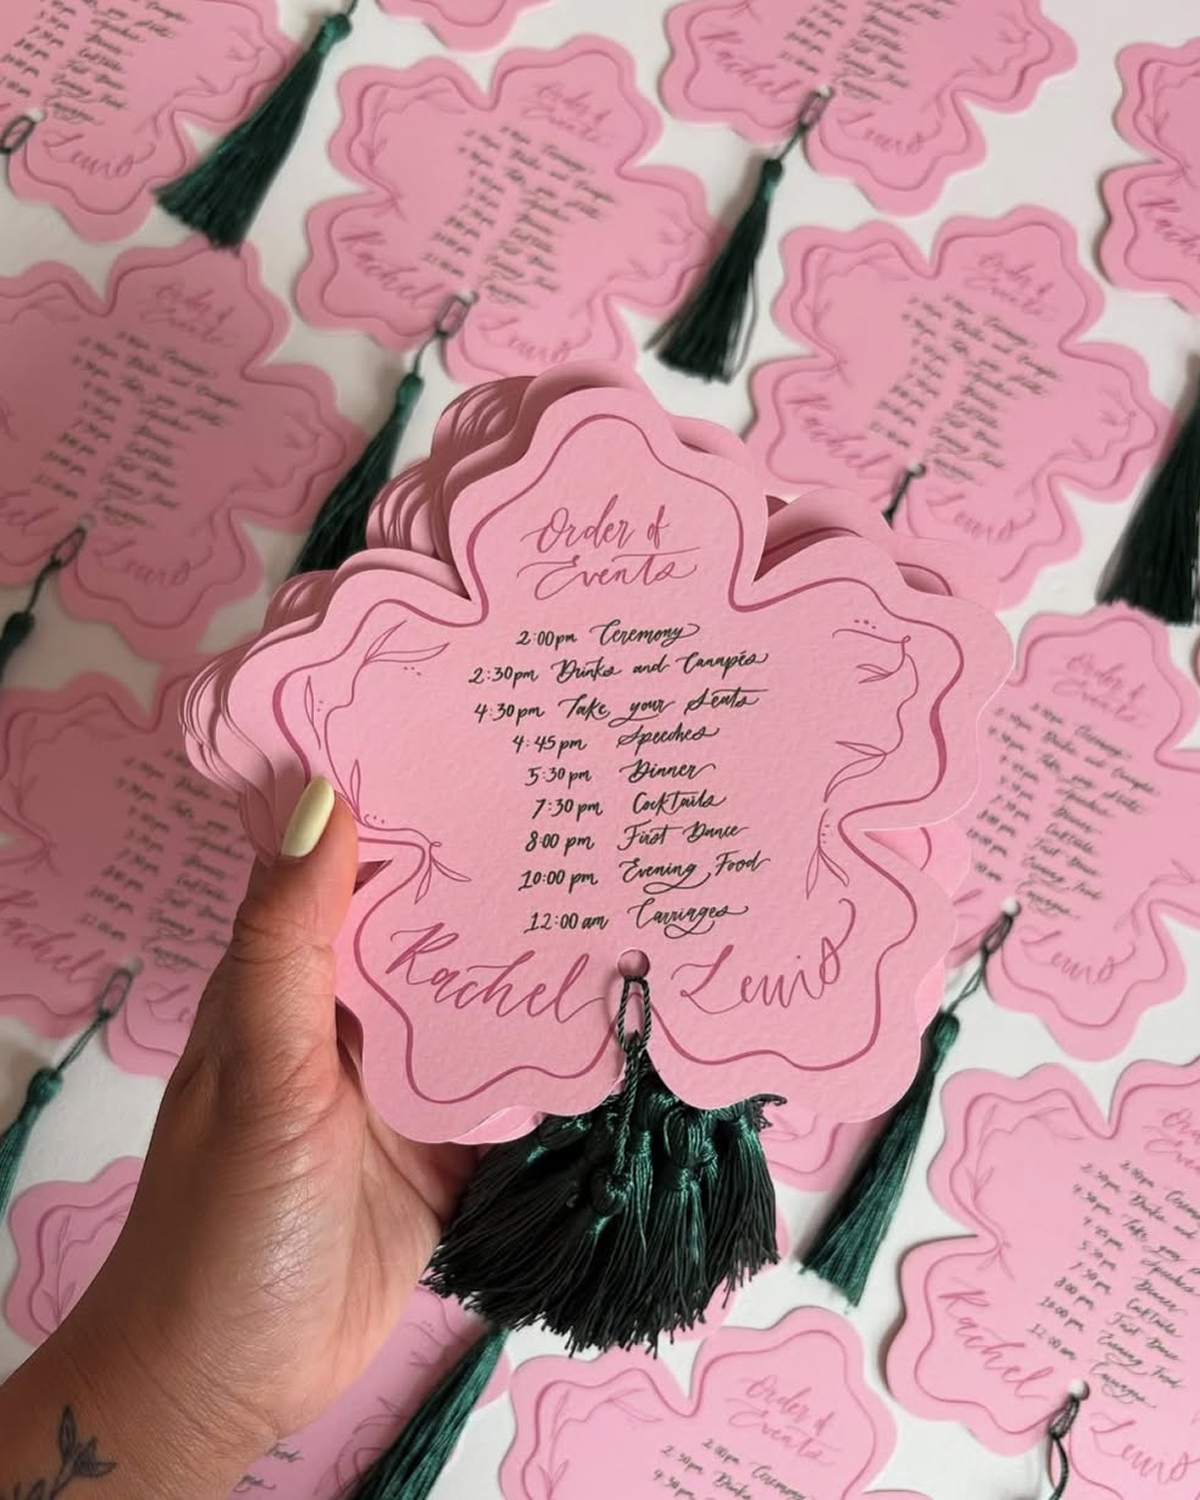 Order of
Events
2:00pm Ceremony
2:30pm Drinks and Canapés
4:30pm Take your Seats
4:45pm Speeches
5:30pm Dinner
7:30pm Cocktails
8:00pm First Dance
10:00pm Evening Food
12:00am Carriages
Rachel Lewis